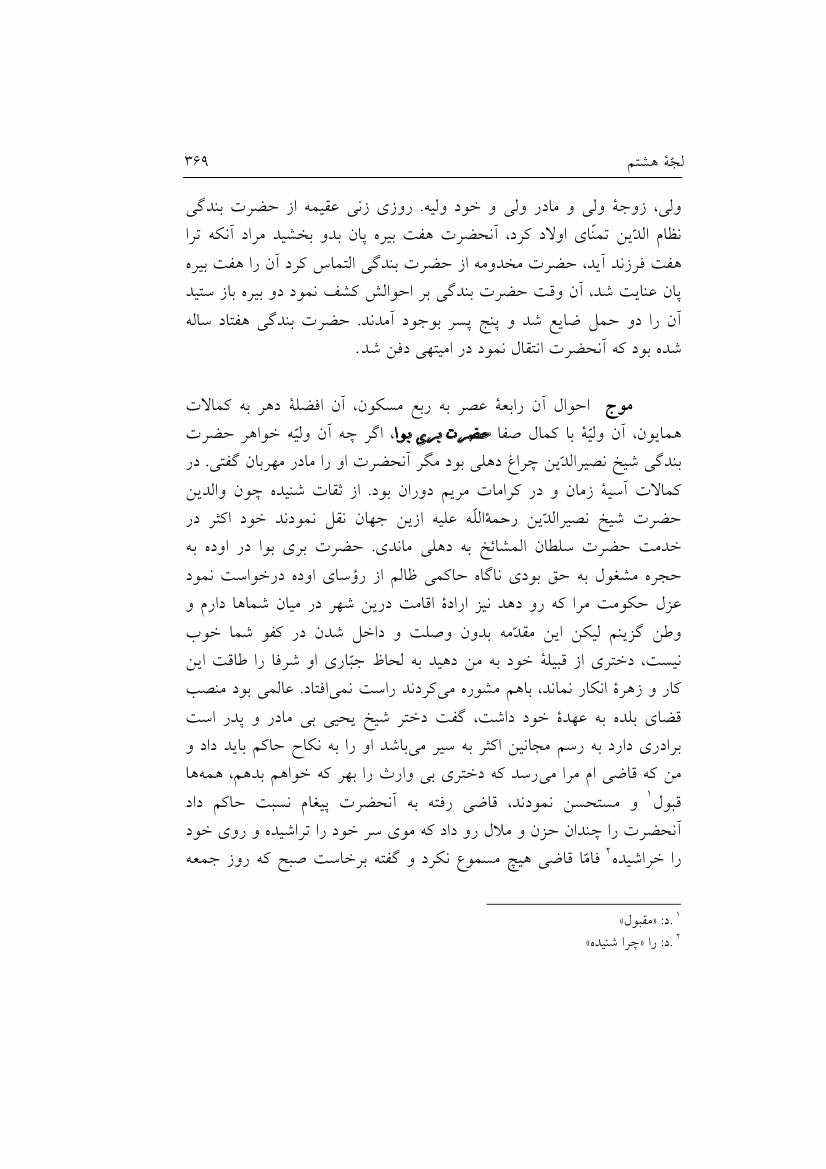 لجّهٔ هشتم ۳۶۹
ولی، زوجهٔ ولی و مادر ولی و خود ولیه. روزی زنی عقیمه از حضرت بندگی
نظام الدّین تمنّای اولاد کرد، آنحضرت هفت بیره پان بدو بخشید مراد آنکه ترا
هفت فرزند آید، حضرت مخدومه از حضرت بندگی التماس کرد آن را هفت بیره
پان عنایت شد، آن وقت حضرت بندگی بر احوالش کشف نمود دو بیره باز ستید
آن را دو حمل ضایع شد و پنج پسر بوجود آمدند. حضرت بندگی هفتاد ساله
شده بود که آنحضرت انتقال نمود در امیتهی دفن شد.
موج احوال آن رابعهٔ عصر به ربع مسکون، آن افضلهٔ دهر به کمالات
همایون، آن ولیّهٔ با کمال صفا حضرت بری بوا، اگر چه آن ولیّه خواهر حضرت
بندگی شیخ نصیرالدّین چراغ دهلی بود مگر آنحضرت او را مادر مهربان گفتی. در
کمالات آسیهٔ زمان و در کرامات مریم دوران بود. از ثقات شنیده چون والدین
حضرت شیخ نصیرالدّین رحمةاللّه علیه ازین جهان نقل نمودند خود اکثر در
خدمت حضرت سلطان المشائخ به دهلی ماندی. حضرت بری بوا در اوده به
حجره مشغول به حق بودی ناگاه حاکمی ظالم از رؤسای اوده درخواست نمود
عزل حکومت مرا که رو دهد نیز ارادهٔ اقامت درین شهر در میان شماها دارم و
وطن گزینم لیکن این مقدّمه بدون وصلت و داخل شدن در کفو شما خوب
نیست، دختری از قبیلهٔ خود به من دهید به لحاظ جبّاری او شرفا را طاقت این
کار و زهرهٔ انکار نماند، باهم مشوره می‌کردند راست نمی‌افتاد. عالمی بود منصب
قضای بلده به عهدهٔ خود داشت، گفت دختر شیخ یحیی بی مادر و پدر است
برادری دارد به رسم مجانین اکثر به سیر می‌باشد او را به نکاح حاکم باید داد و
من که قاضی ام مرا می‌رسد که دختری بی وارث را بهر که خواهم بدهم، همه‌ها
قبول۱ و مستحسن نمودند، قاضی رفته به آنحضرت پیغام نسبت حاکم داد
آنحضرت را چندان حزن و ملال رو داد که موی سر خود را تراشیده و روی خود
را خراشیده۲ فامّا قاضی هیچ مسموع نکرد و گفته برخاست صبح که روز جمعه
۱ .د: «مقبول»
۲ .د: را «چرا شنیده»